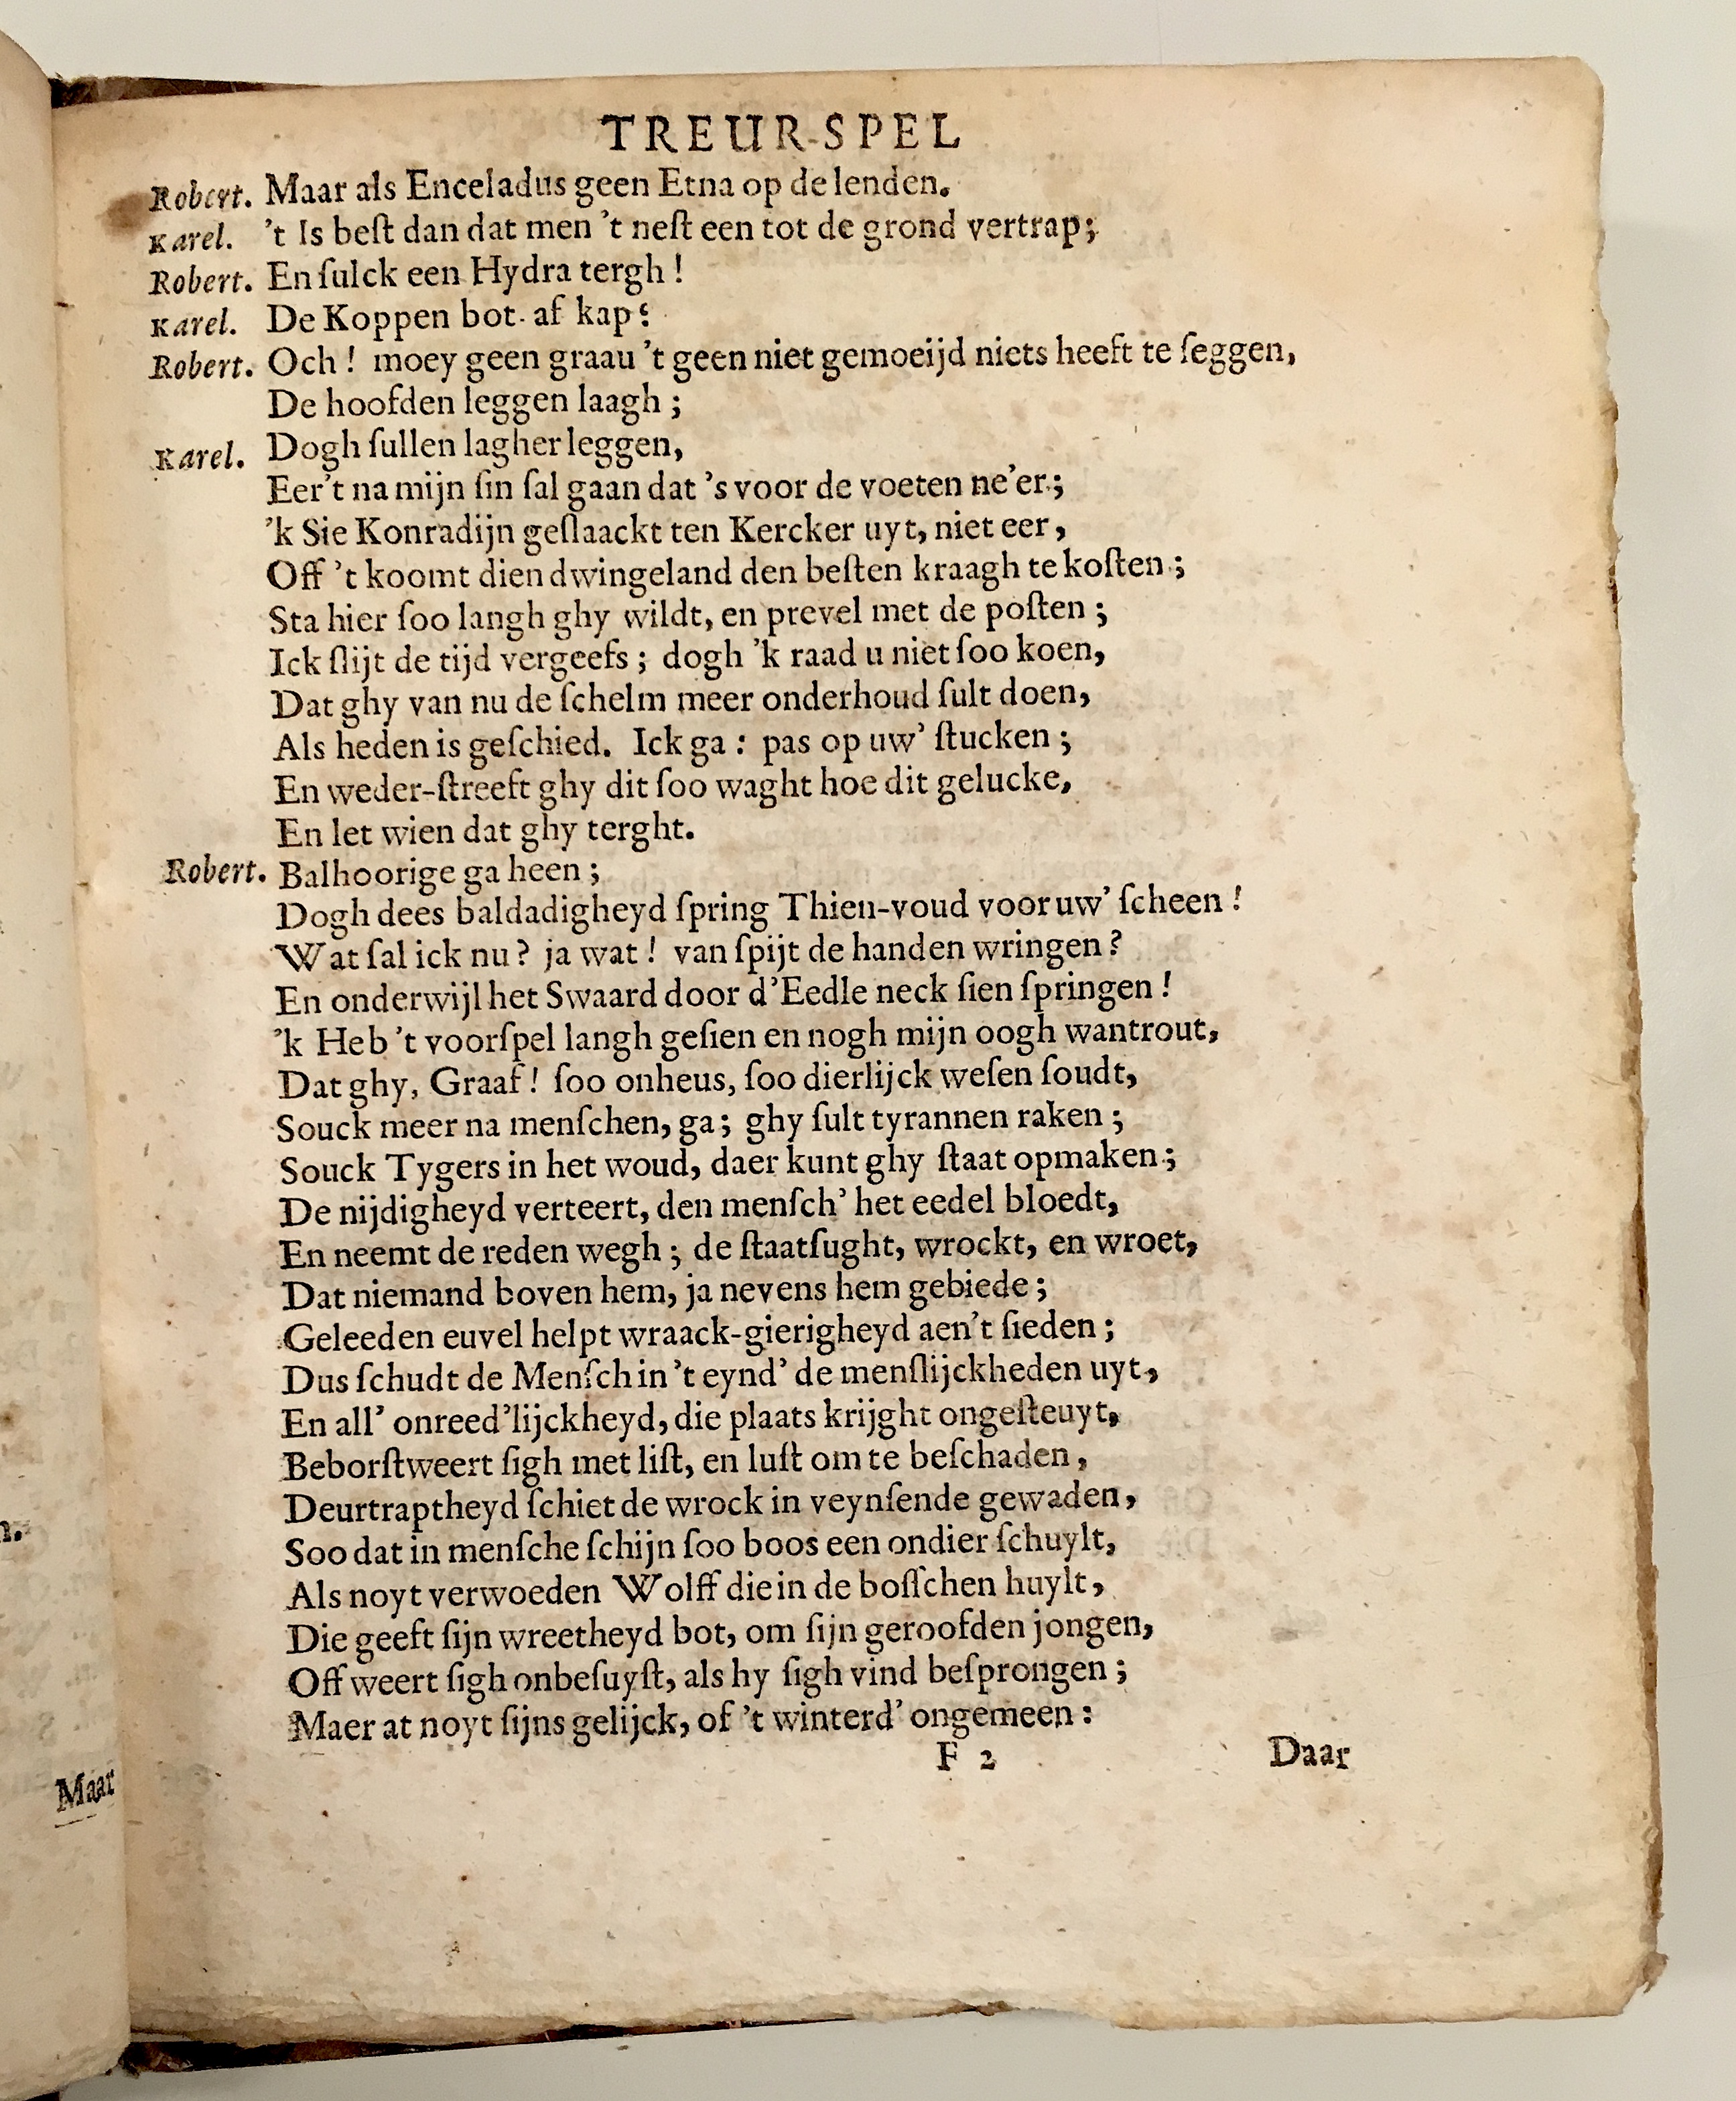 TREUR-SPEL
Robert. Maar als Enceladus geen Etna op de lenden.
Karel. 't Is beſt dan dat men 't neſt een tot de grond vertrap;
Robert. En ſulck een Hydra tergh!
Karel. De Koppen bot af kap?
Robert. Och! moey geen graau 't geen niet gemoeijd niets heeft te ſeggen,
De hoofden leggen laagh;
Karel. Dogh ſullen lagher leggen,
Eer't na mijn ſin ſal gaan dat 's voor de voeten ne'er;
'k Sie Konradijn geſlaackt ten Kercker uyt, niet eer,
Off 't koomt dien dwingeland den beſten kraagh te koſten;
Sta hier ſoo langh ghy wildt, en prevel met de poſten;
Ick ſlijt de tijd vergeefs; dogh 'k raad u niet ſoo koen,
Dat ghy van nu de ſchelm meer onderhoud ſult doen,
Als heden is geſchied. Ick ga: pas op uw' ſtucken;
En weder-ſtreeft ghy dit ſoo waght hoe dit gelucke,
En let wien dat ghy terght.
Robert. Balhoorige ga heen;
Dogh dees baldadigheyd ſpring Thien-voud voor uw' ſcheen!
Wat ſal ick nu? ja wat! van ſpijt de handen wringen?
En onderwijl het Swaard door d'Eedle neck ſien ſpringen!
'k Heb 't voorſpel langh geſien en nogh mijn oogh wantrout,
Dat ghy, Graaf! ſoo onheus, ſoo dierlijck weſen ſoudt,
Souck meer na menſchen, ga; ghy ſult tyrannen raken;
Souck Tygers in het woud, daer kunt ghy ſtaat opmaken;
De nijdigheyd verteert, den menſch' het eedel bloedt,
En neemt de reden wegh; de ſtaatſught, wrockt, en wroet,
Dat niemand boven hem, ja nevens hem gebiede;
Geleeden euvel helpt wraack-gierigheyd aen't ſieden;
Dus ſchudt de Menſch in 't eynd' de menſlijckheden uyt,
En all' onreed'lijckheyd, die plaats krijght ongeſteuyt,
Beborſtweert ſigh met liſt, en luſt om te beſchaden,
Deurtraptheyd ſchiet de wrock in veynſende gewaden,
Soo dat in menſche ſchijn ſoo boos een ondier ſchuylt,
Als noyt verwoeden Wolff die in de boſſchen huylt,
Die geeft ſijn wreetheyd bot, om ſijn geroofden jongen,
Off weert ſigh onbeſuyſt, als hy ſigh vind beſprongen;
Maer at noyt ſijns gelijck, of 't winterd' ongemeen:
F 2 Daar
Maar